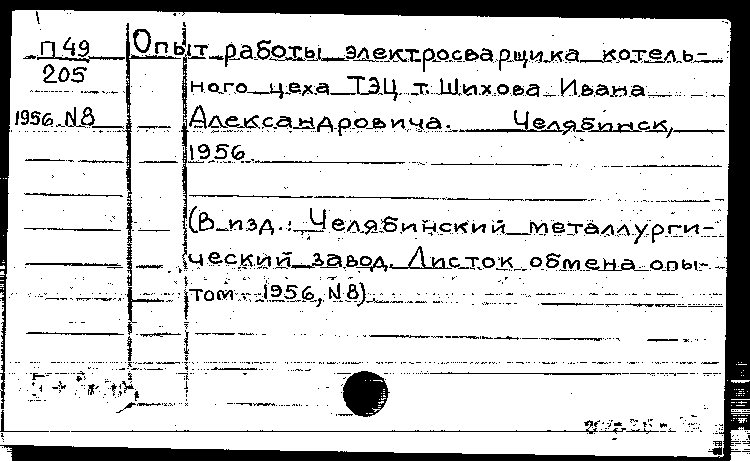 П49
205
1956 N8
Опыт работы электросварщика котель-
ного цеха ТЭЦ т. Шихова Ивана
Александровича. Челябинск,
1956.
(В изд.: Челябинский металлурги-
ческий завод. Листок обмена опы-
том 1956, N8)